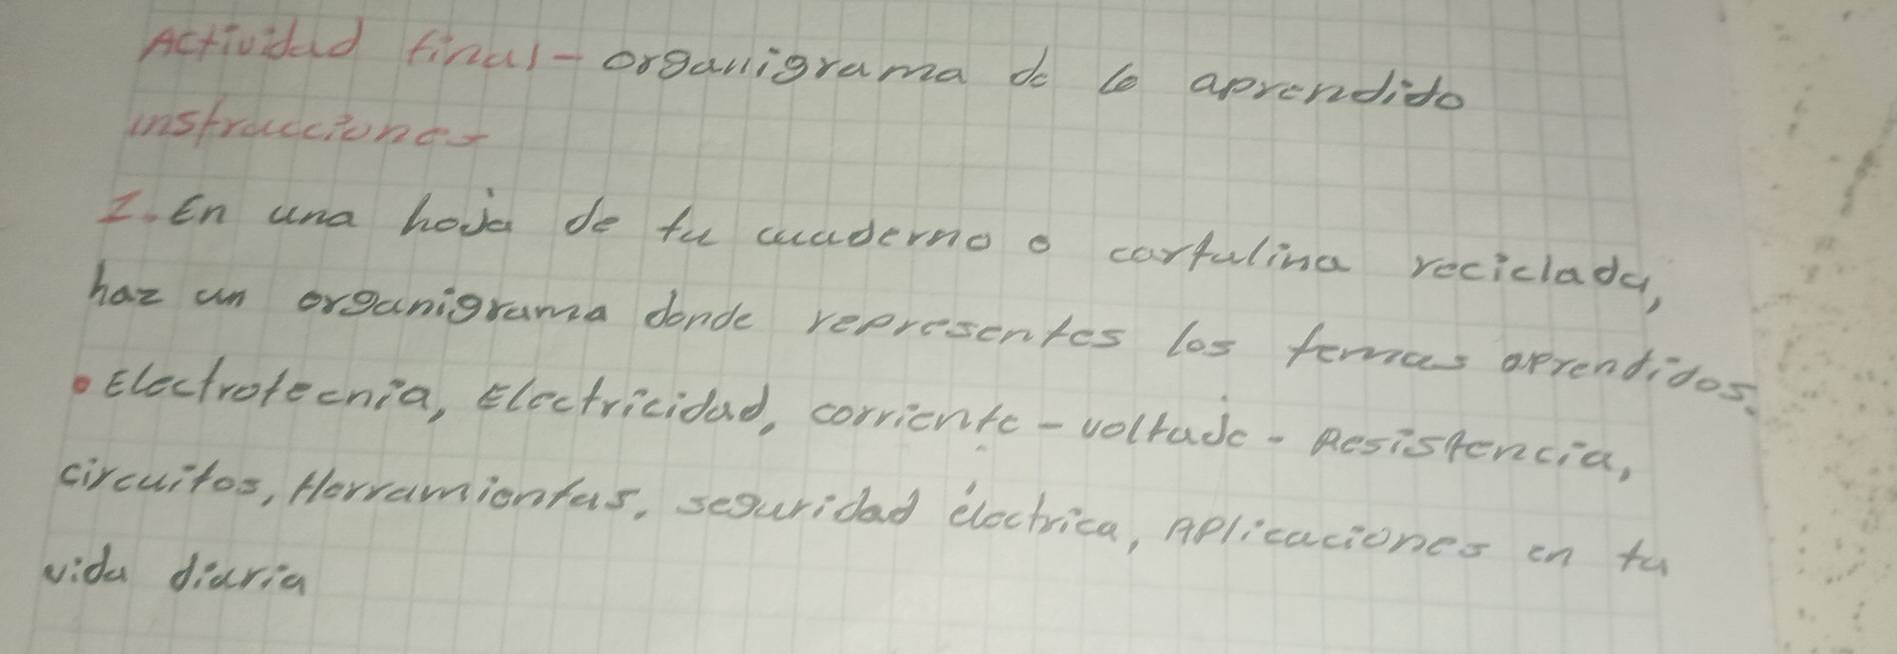 Actividad final - organigrama de lo aprendido
instrucciones
1. En una hoja de tu cuaderno o cartulina reciclada,
haz un organigrama donde representes los temas aprendidos.
• Electrotecnia, Electricidad, corriente - voltaje - Resistencia,
circuitos, Herramientas, seguridad éléctrica, Aplicaciones en tu
vida diaria